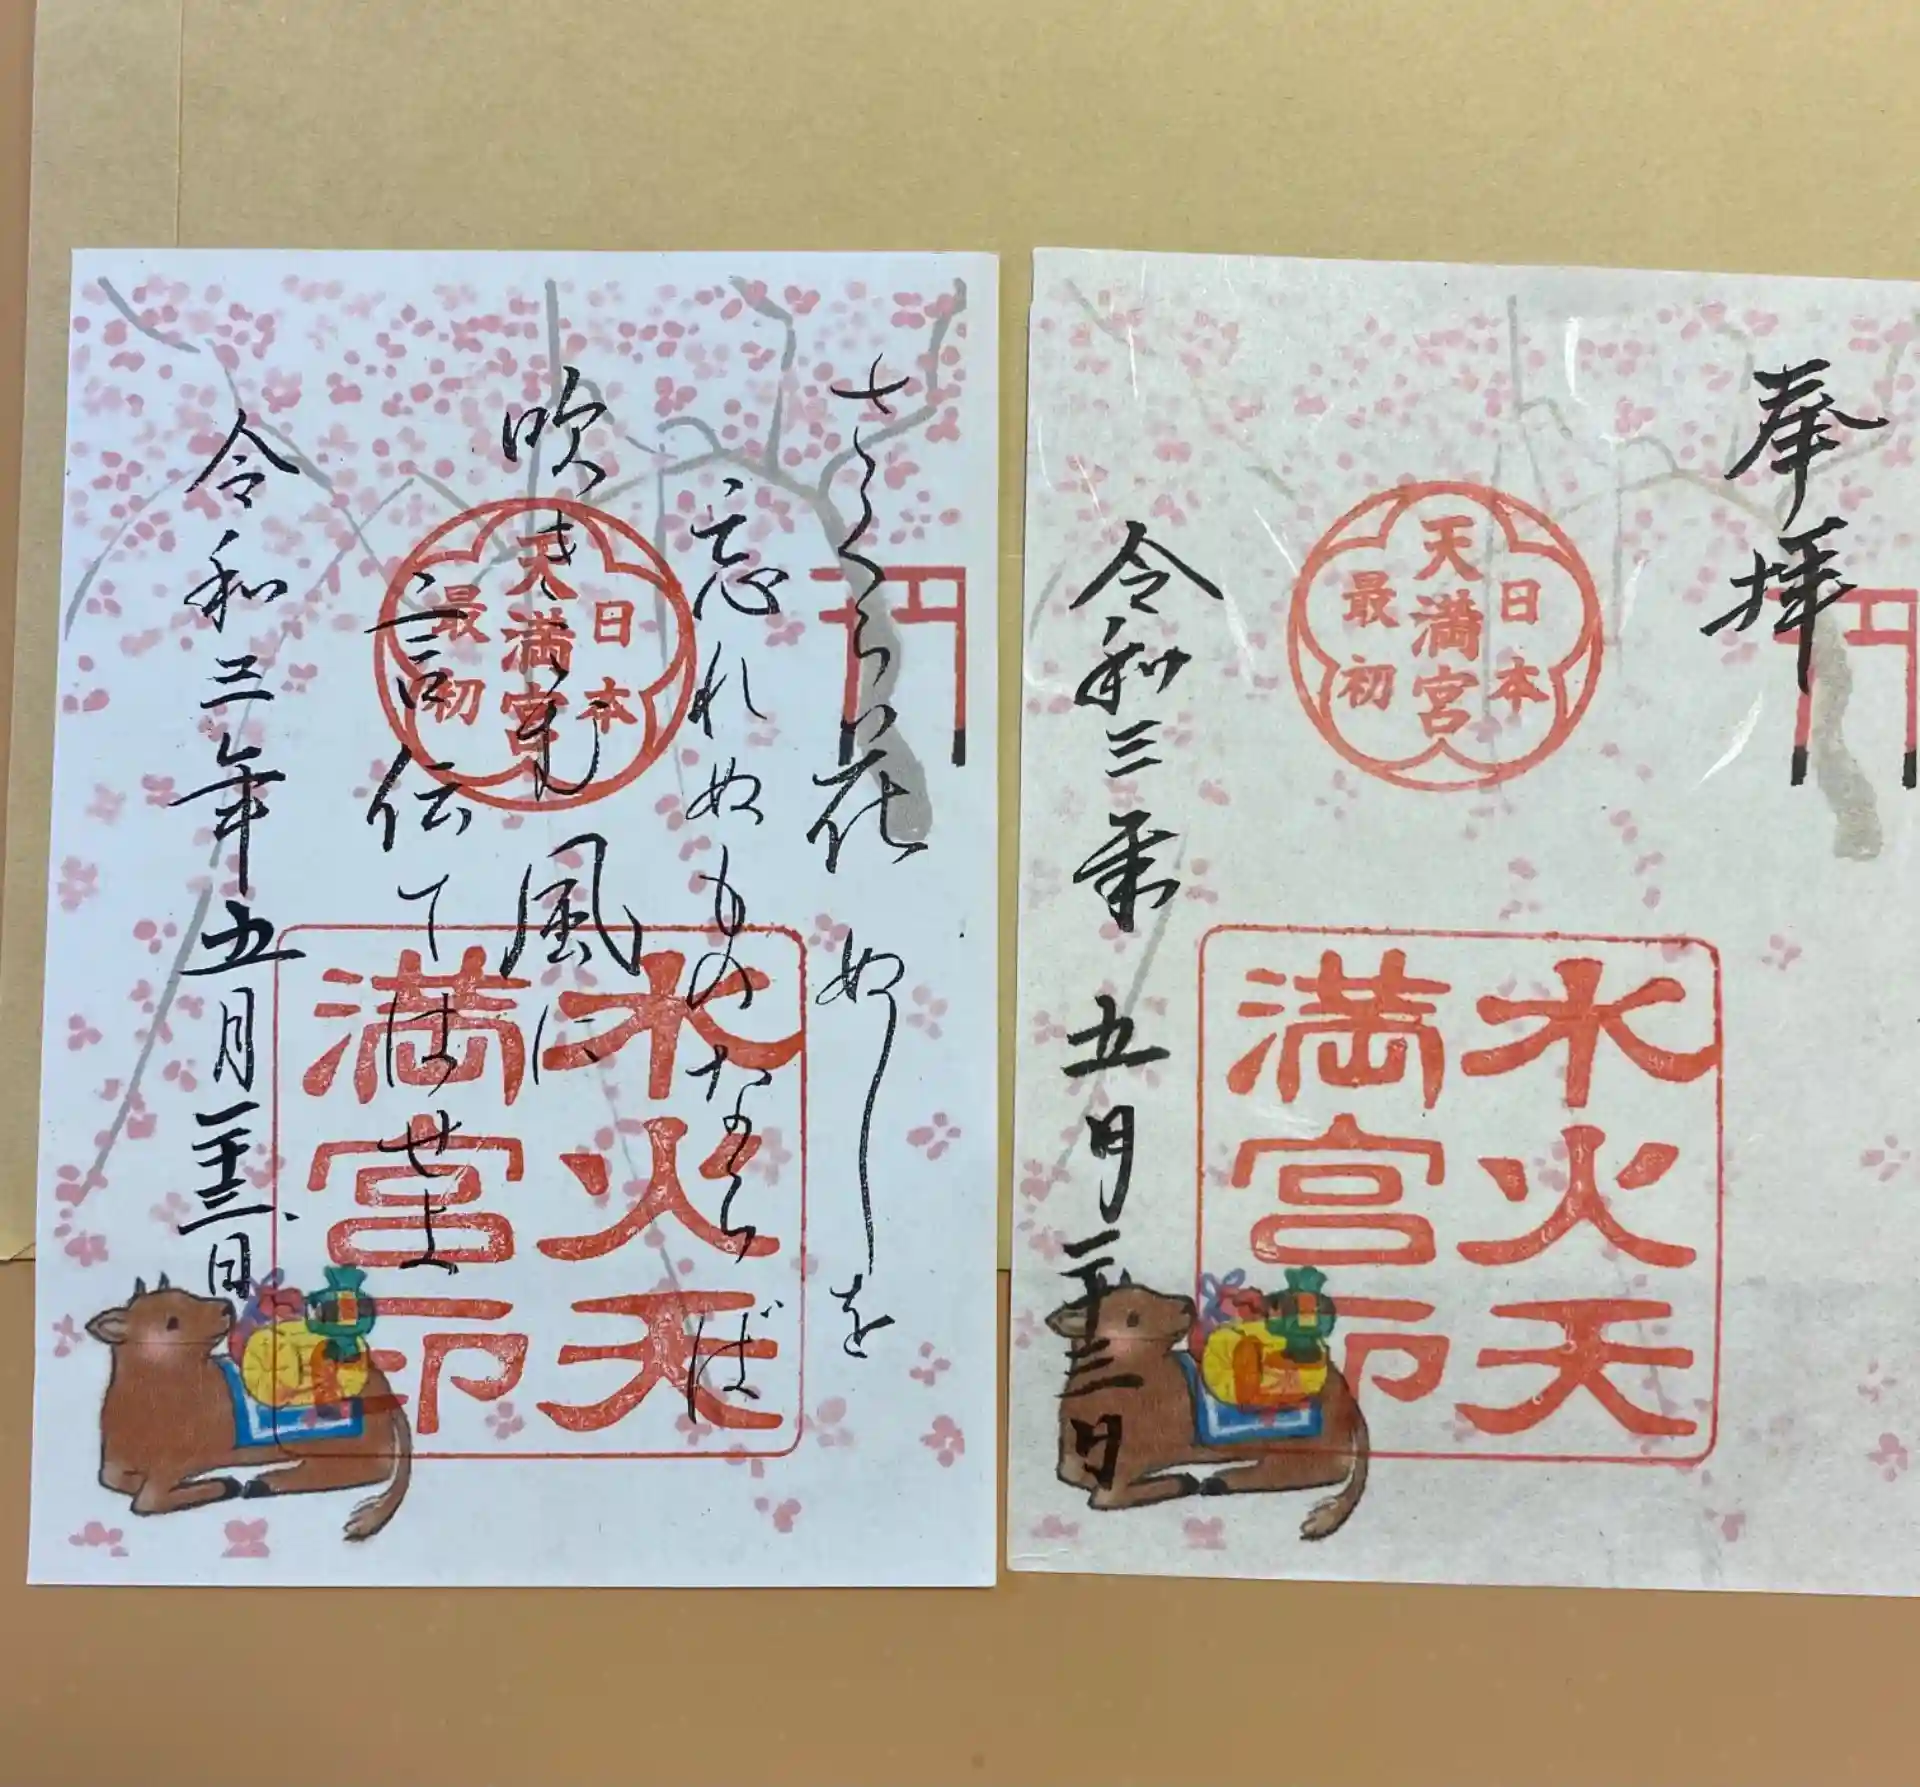 さくら花ぬしを
忘れぬものならば
吹きこむ風に
言伝てはせよ
令和三年五月二十三日
日本
天満宮
最初
水火天
満宮印
奉拝
日本
天満宮
最初
水火天
満宮印
令和三年五月二十三日